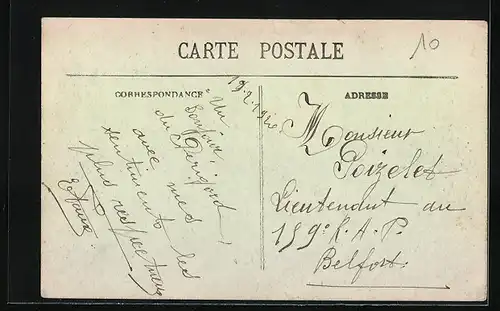 CARTE POSTALE
10
CORRESPONDANCE
ADRESSE
19.2.1920
Un
bonjour
du Périgord,
avec mes
sentiments les
plus respectueux
Monsieur
Poizelet
Lieutendnt au
159e R.A.P.
Belfort